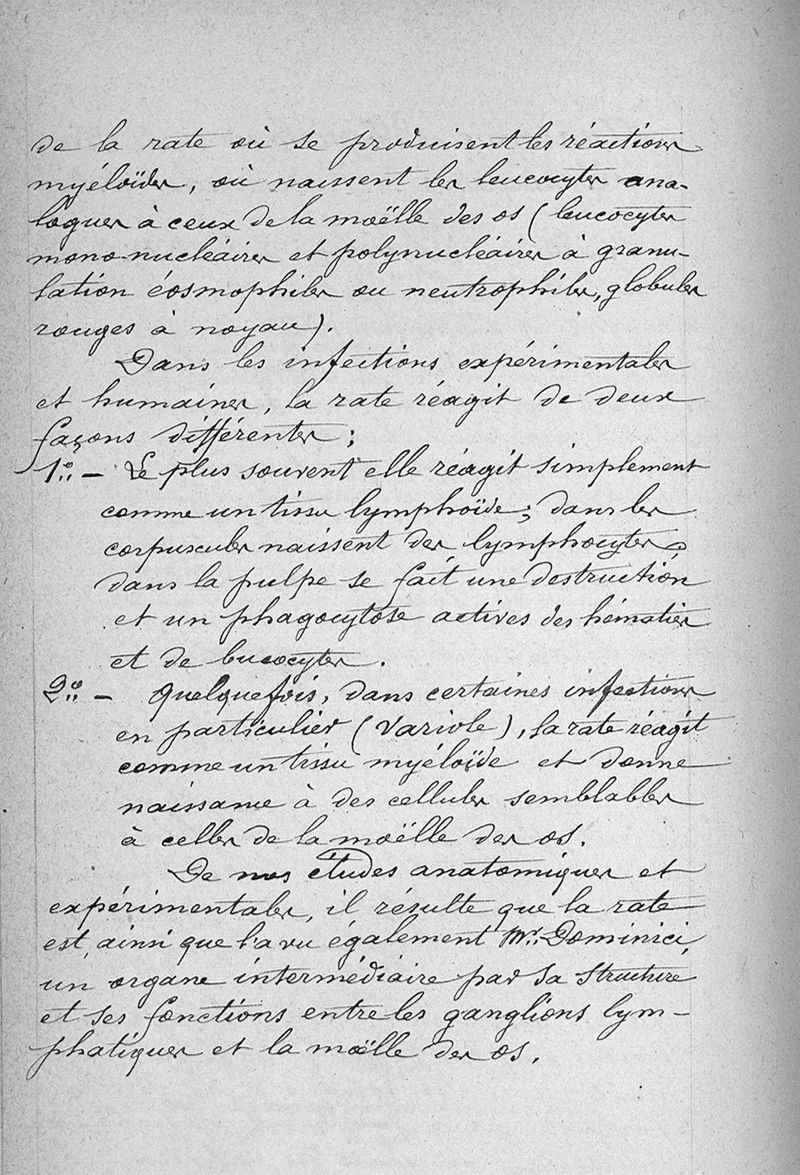 de la rate où se produisent les réactions
myéloïdes, où naissent les leucocytes ana-
logues à ceux de la moëlle des os (leucocytes
mono-nucléaires et polynucléaires à granu-
lation éosmophiles ou neutrophiles, globules
rouges à noyau).
Dans les infections expérimentales
et humaines, la rate réagit de deux
façons différentes :
1º. — Le plus souvent elle réagit simplement
comme un tissu lymphoïde ; dans les
corpuscules naissent des lymphocytes ;
dans la pulpe se fait une destruction
et un phagocytose actives des hématies
et de leucocytes.
2º. — Quelquefois, dans certaines infections
en particulier (Variole), la rate réagit
comme un tissu myéloïde et donne
naissance à des cellules semblables
à celles de la moëlle des os.
De nos études anatomiques et
expérimentales, il résulte que la rate
est, ainsi que l'a vu également Mr. Dominici,
un organe intermédiaire par sa structure
et ses fonctions entre les ganglions lym-
phatiques et la moëlle des os.